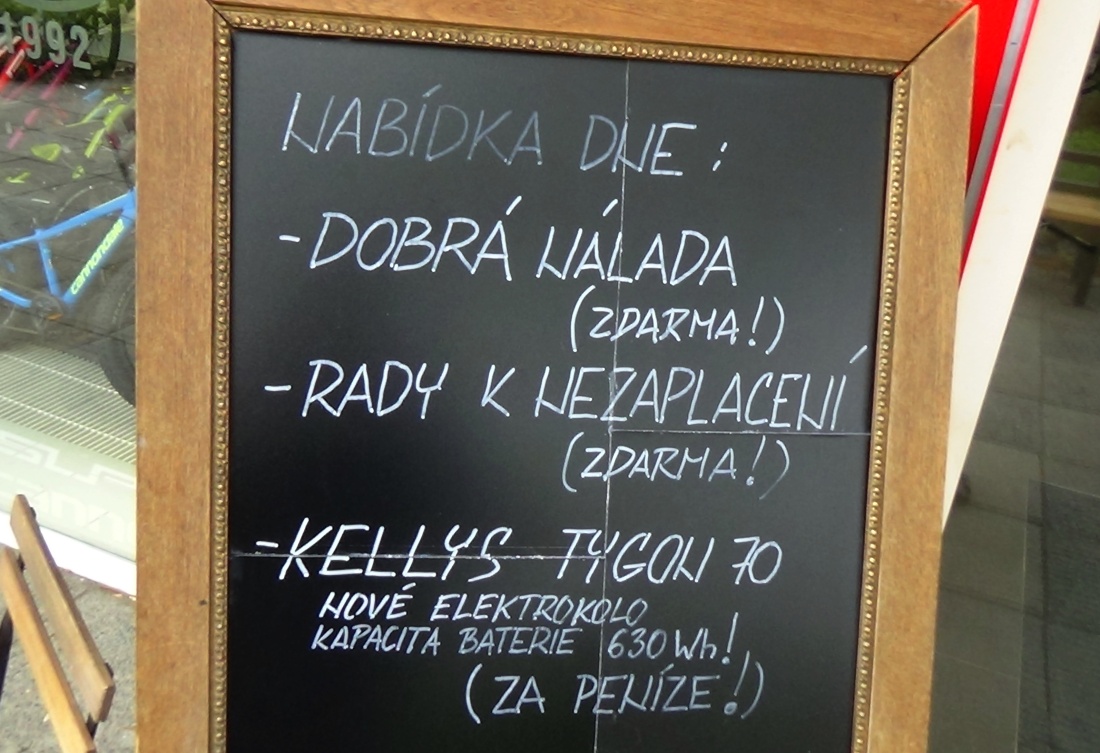 1992
cannondale
NABÍDKA DNE :
- DOBRÁ NÁLADA
(ZDARMA!)
- RADY K NEZAPLACENÍ
(ZDARMA!)
- KELLYS TYGON 70
NOVÉ ELEKTROKOLO
KAPACITA BATERIE 630 Wh!
(ZA PENÍZE!)